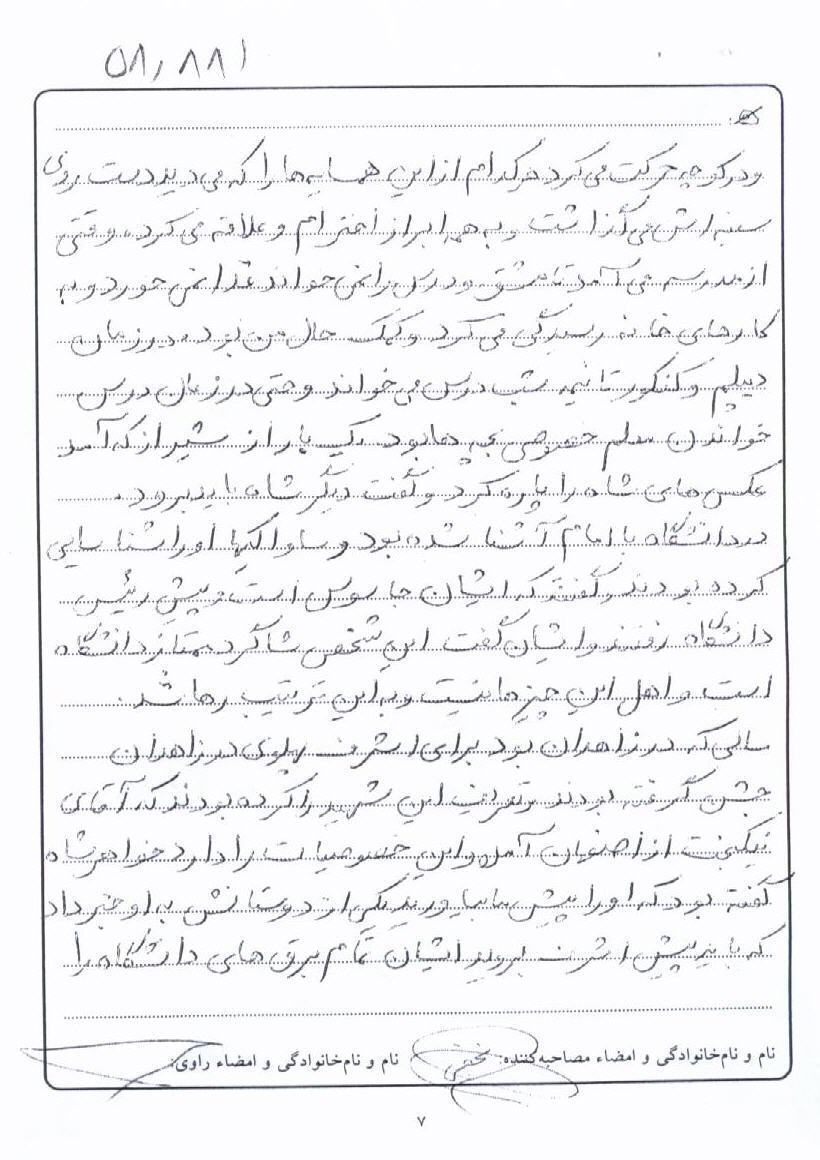 ۵۸٫۸۸۱
و در کوچه حرکت می کرد هر کدام از این همسایه ها را که می دید دست روی
سینه اش می گذاشت و به همه ابراز احترام و علاقه می کرد. وقتی
از مدرسه می آمد تا مشق و درس را نمی خواند غذا نمی خورد و به
کارهای خانه رسیدگی می کرد و کمک حال من بود. در زمان
دیپلم و کنکور تا نیمه شب درس می خواند و حتی در زمان درس
خواندن معلم خصوصی بچه ها بود. یک بار از شیراز که آمد
عکس های شاه را پاره کرد و گفت دیگر شاه باید برود.
در دانشگاه با امام آشنا شده بود و ساواکیها او را شناسایی
کرده بودند و گفتند که ایشان جاسوس است و پیش رئیس
دانشگاه رفتند و ایشان گفت این شخص شاگرد ممتاز دانشگاه
است و اهل این چیزها نیست و به این ترتیب رها شد.
سالی که در زاهدان بود برای اشرف پهلوی در زاهدان
جشن گرفته بودند و تعریف این شهید را کرده بودند که آقای
نیکبخت از اصفهان آمده و این خصوصیات را دارد خواهر شاه
گفته بود که او را پیش ما بیاورید یکی از دوستانش به او خبر داد
که باید پیش اشرف بروید ایشان تمام برق های دانشگاه را
نام و نام‌خانوادگی و امضاء مصاحبه‌کننده: نام و نام‌خانوادگی و امضاء راوی:
۷